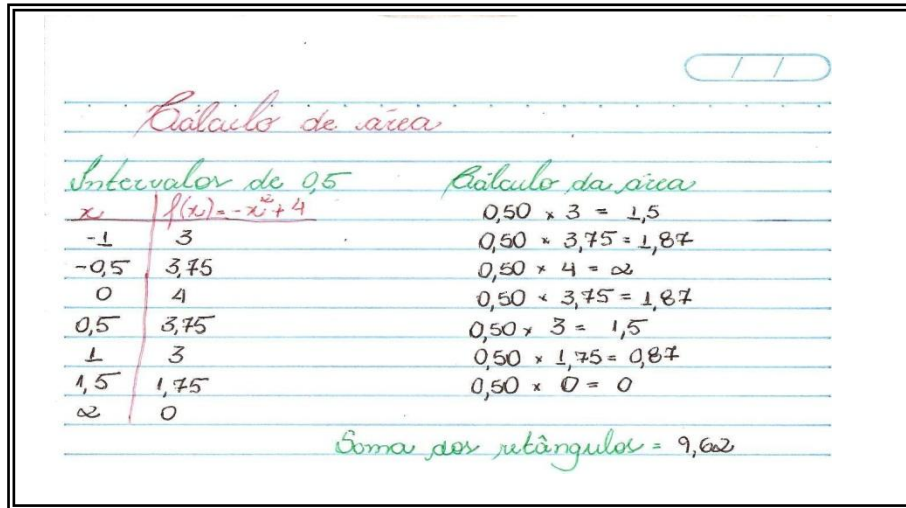 Cálculo de área
Intervalos de 0,5
x f(x) = -x² + 4
-1 3
-0,5 3,75
0 4
0,5 3,75
1 3
1,5 1,75
2 0
Cálculo da área
0,50 × 3 = 1,5
0,50 × 3,75 = 1,87
0,50 × 4 = 2
0,50 × 3,75 = 1,87
0,50 × 3 = 1,5
0,50 × 1,75 = 0,87
0,50 × 0 = 0
Soma dos retângulos = 9,62